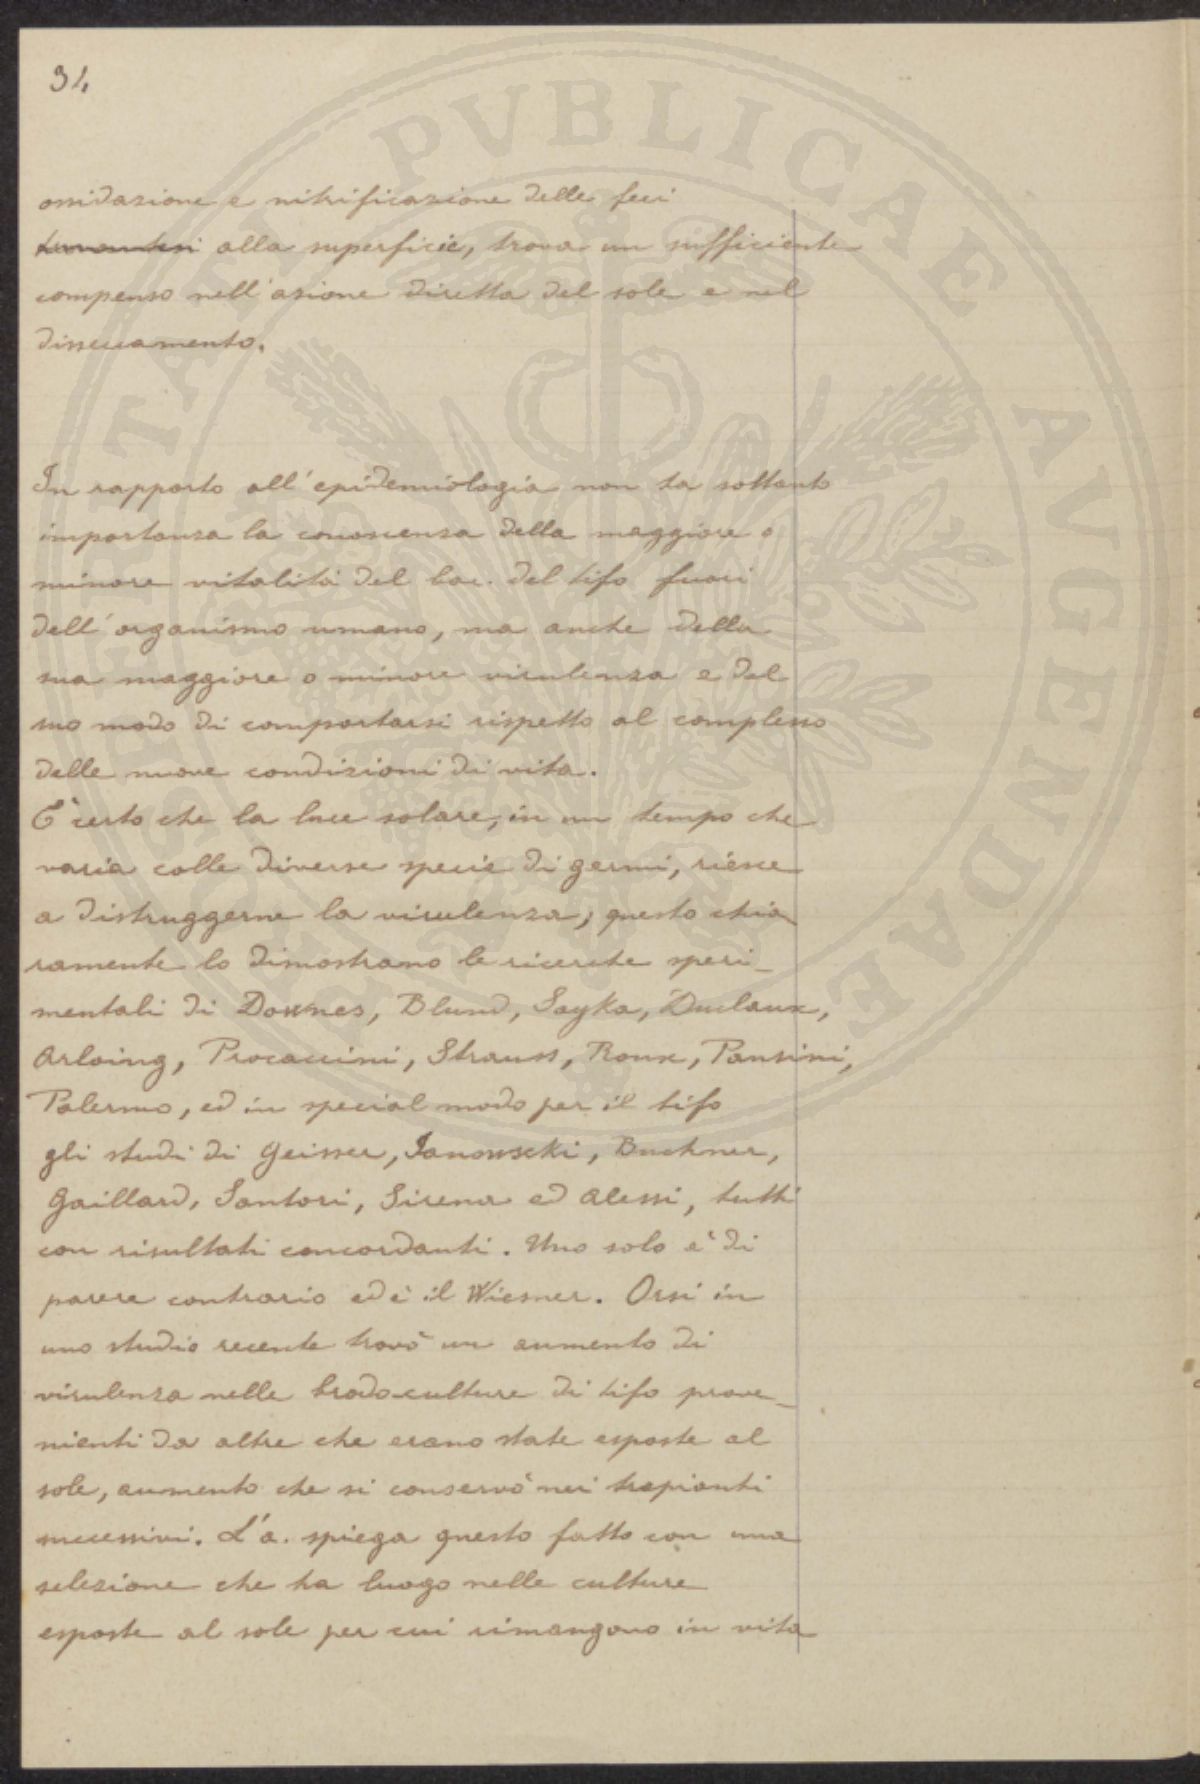 34
ossidazione e nitrificazione delle feci
alla superficie, trova un sufficiente
compenso nell'azione diretta del sole e nel
disseccamento.
In rapporto all'epidemiologia non ha soltanto
importanza la conoscenza della maggiore o
minore vitalità del bac. del tifo fuori
dell'organismo umano, ma anche della
sua maggiore o minore virulenza e del
suo modo di comportarsi rispetto al complesso
delle nuove condizioni di vita.
È certo che la luce solare, in un tempo che
varia colle diverse specie di germi, riesce
a distruggerne la virulenza; questo chia
ramente lo dimostrano le ricerche speri_
mentali di Downes, Blund, Soyka, Duclaux,
Arloing, Procaccini, Strauss, Roux, Pansini,
Palermo, ed in special modo per il tifo
gli studi di Geisser, Janowscki, Buchner,
Gaillard, Santori, Sirena ed Alessi, tutti
con risultati concordanti. Uno solo è di
parere contrario ed è il Wiesner. Orsi in
uno studio recente trovò un aumento di
virulenza nelle brodo-culture di tifo prove_
nienti da altre che erano state esposte al
sole, aumento che si conservò nei trapianti
successivi. L'a. spiega questo fatto con una
selezione che ha luogo nelle culture
esposte al sole per cui rimangono in vita
PUBLICAE AVGENDAE